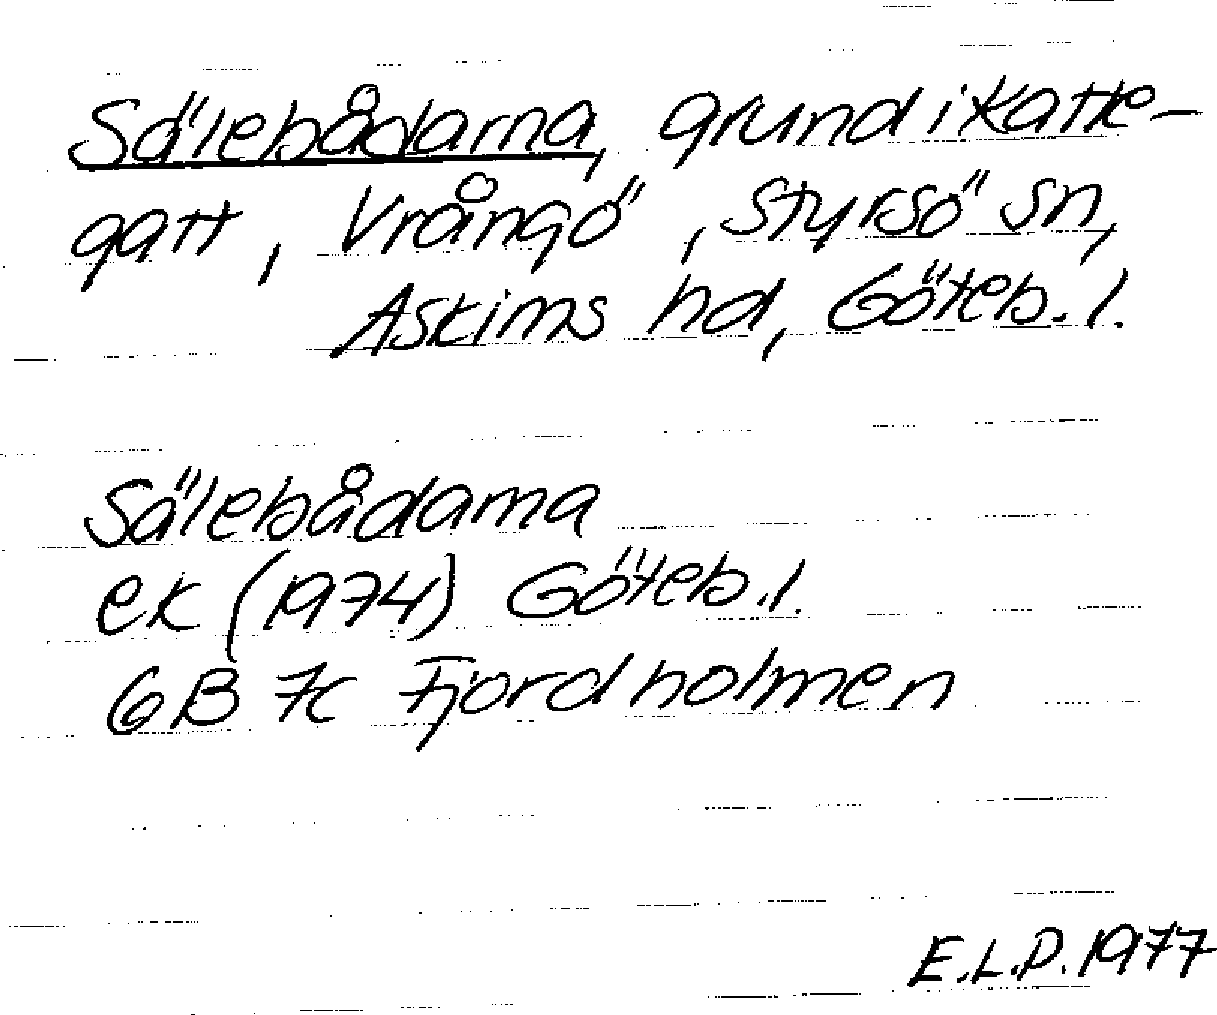 Sälebådarna, grund i Katte-
gatt, Vrångö, Styrsö sn,
Askims hd, Göteb. l.
Sälebådarna
ek (1974) Göteb. l.
6B 7c Fjordholmen
E.L.P. 1977